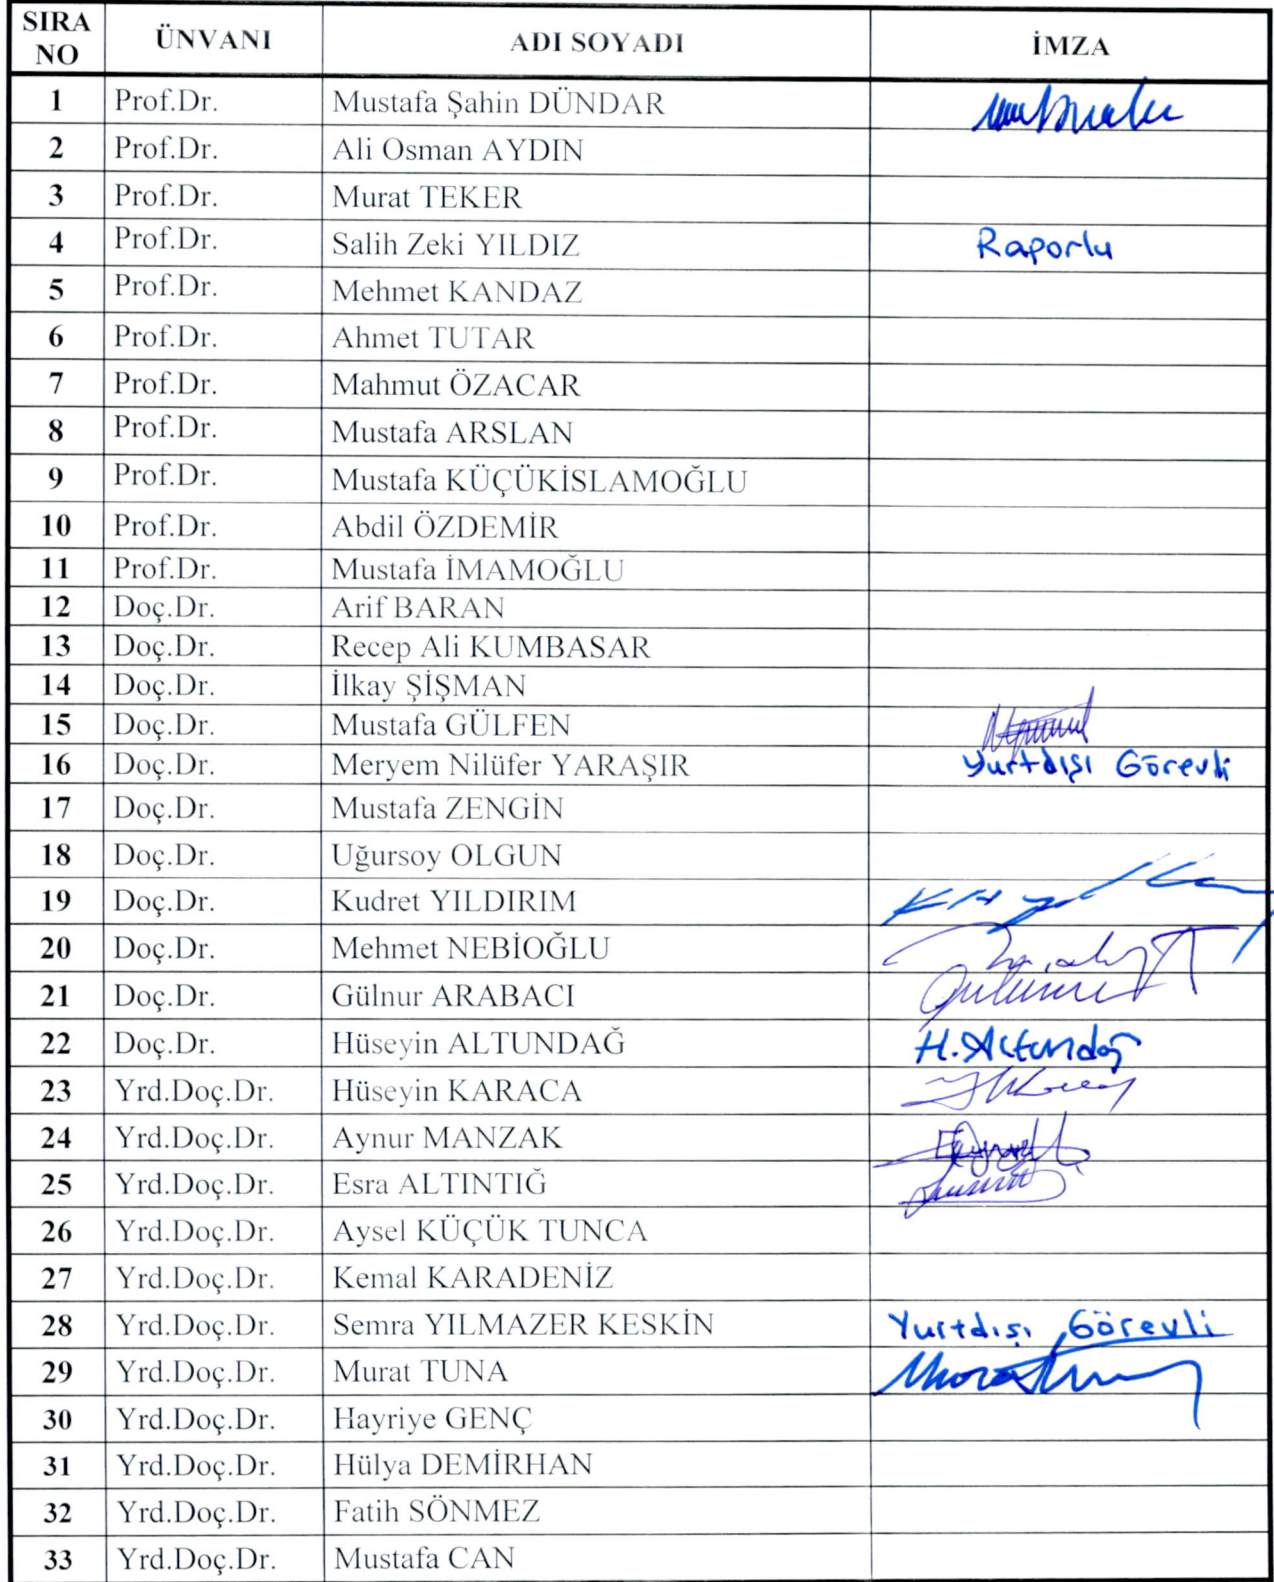 SIRA NO ÜNVANI ADI SOYADI İMZA
1 Prof.Dr. Mustafa Şahin DÜNDAR
2 Prof.Dr. Ali Osman AYDIN
3 Prof.Dr. Murat TEKER
4 Prof.Dr. Salih Zeki YILDIZ Raporlu
5 Prof.Dr. Mehmet KANDAZ
6 Prof.Dr. Ahmet TUTAR
7 Prof.Dr. Mahmut ÖZACAR
8 Prof.Dr. Mustafa ARSLAN
9 Prof.Dr. Mustafa KÜÇÜKİSLAMOĞLU
10 Prof.Dr. Abdil ÖZDEMİR
11 Prof.Dr. Mustafa İMAMOĞLU
12 Doç.Dr. Arif BARAN
13 Doç.Dr. Recep Ali KUMBASAR
14 Doç.Dr. İlkay ŞİŞMAN
15 Doç.Dr. Mustafa GÜLFEN
16 Doç.Dr. Meryem Nilüfer YARAŞIR Yurtdışı Görevli
17 Doç.Dr. Mustafa ZENGİN
18 Doç.Dr. Uğursoy OLGUN
19 Doç.Dr. Kudret YILDIRIM
20 Doç.Dr. Mehmet NEBİOĞLU
21 Doç.Dr. Gülnur ARABACI
22 Doç.Dr. Hüseyin ALTUNDAĞ H. Altundağ
23 Yrd.Doç.Dr. Hüseyin KARACA
24 Yrd.Doç.Dr. Aynur MANZAK
25 Yrd.Doç.Dr. Esra ALTINTIĞ
26 Yrd.Doç.Dr. Aysel KÜÇÜK TUNCA
27 Yrd.Doç.Dr. Kemal KARADENİZ
28 Yrd.Doç.Dr. Semra YILMAZER KESKİN Yurtdışı Görevli
29 Yrd.Doç.Dr. Murat TUNA
30 Yrd.Doç.Dr. Hayriye GENÇ
31 Yrd.Doç.Dr. Hülya DEMİRHAN
32 Yrd.Doç.Dr. Fatih SÖNMEZ
33 Yrd.Doç.Dr. Mustafa CAN